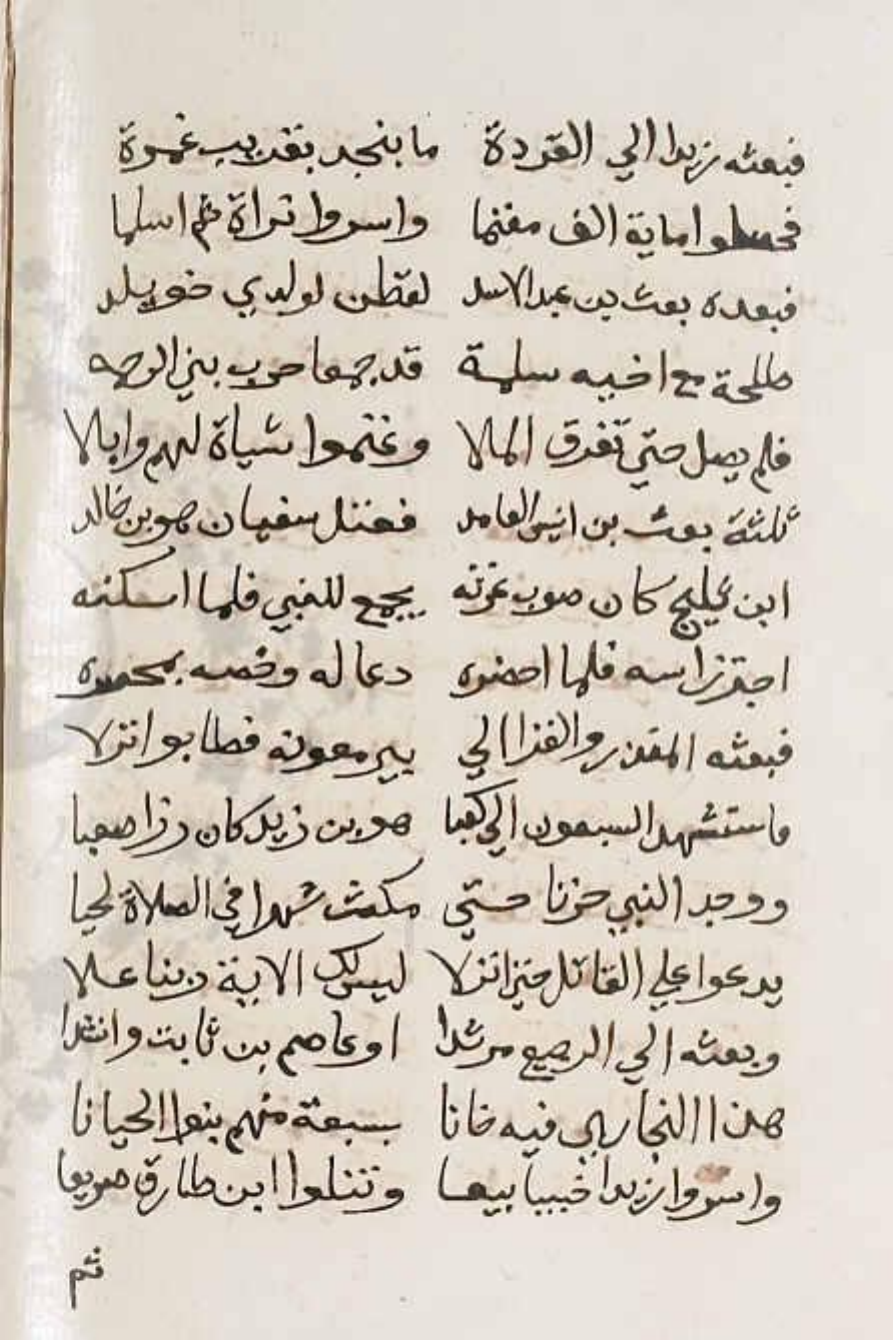 فبعثه زيدا الي القردة ما بنجد بقريب غمرة
فحصلوا ماية الف مغنما واسروا فراة ثم اسلما
فبعده بعث بن عبد الاسد لقطن لولدي خويلد
طلحة مع اخيه سلمة قد جمعا حرب بني الرحمه
فلم يصل حتي تفرق الملا وغنموا شياة لهم وابلا
ثلثة بعث بن انيس العامد فقتل سفيان هو بن خالد
ابن كان صوب عرنه يجمع للنبي فلما اسكنه
اجتز راسه فلما احضره دعا له وخصه
فبعثه المنذر والقرا الي بير معونه فطابوا نزلا
فاستشهد السبعون الي كعبا هو بن زيد كان رزا صعبا
ووجد النبي حزنا حتي مكث شهرا في الصلاة لحيا
يدعوا علي القاتل حتي انزلا ليس لك الاية ربنا علا
وبعثه الي الرجيع مرثدا او عاصم بن ثابت وانشدا
هذا النجاري فيه خانا بسبعة منهم بنوا لحيانا
واسروا زيدا خبيبا بيعا وقتلوا ابن طارق صريعا
ثم